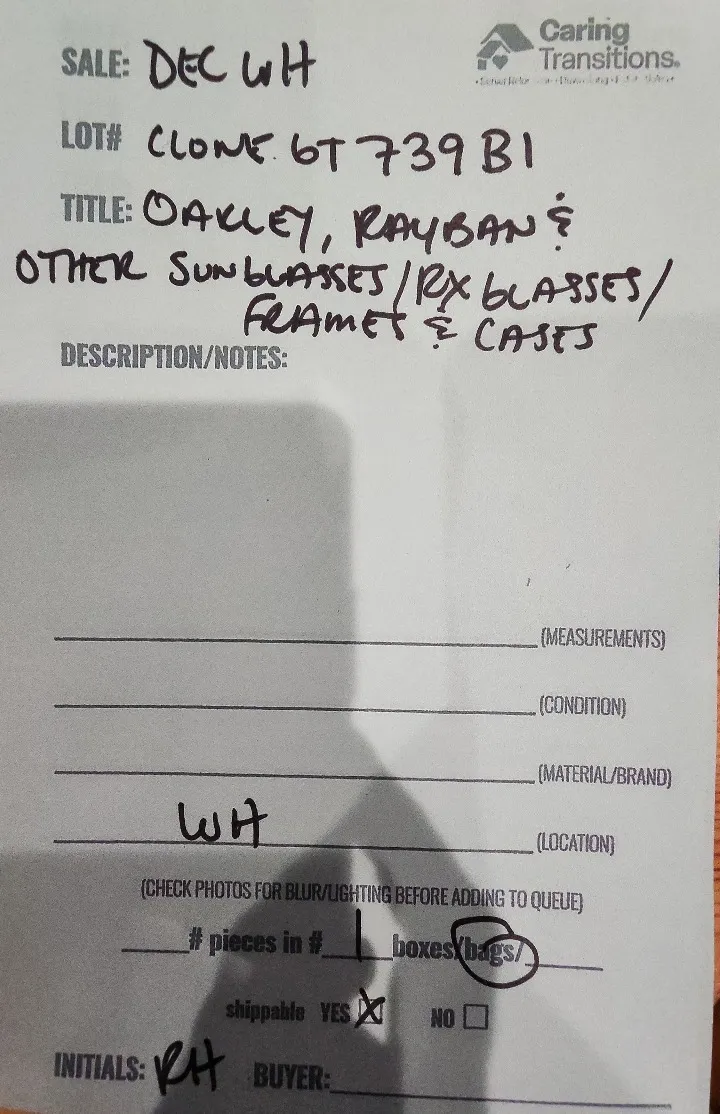 Caring
Transitions.
SALE: DEC WH
LOT# CLONE 6T 739 B1
TITLE: OAKLEY, RAYBAN &
OTHER SUNGLASSES/RX GLASSES/
FRAMES & CASES
DESCRIPTION/NOTES:
(MEASUREMENTS)
(CONDITION)
(MATERIAL/BRAND)
WH (LOCATION)
(CHECK PHOTOS FOR BLUR/LIGHTING BEFORE ADDING TO QUEUE)
# pieces in # 1 boxes/bags/
shippable YES X NO
INITIALS: RH BUYER: